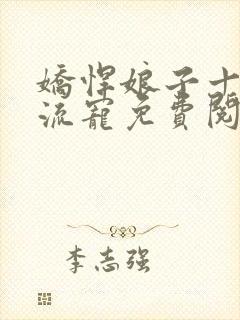 嬌悍娘子十
流寵免費閱
李志强